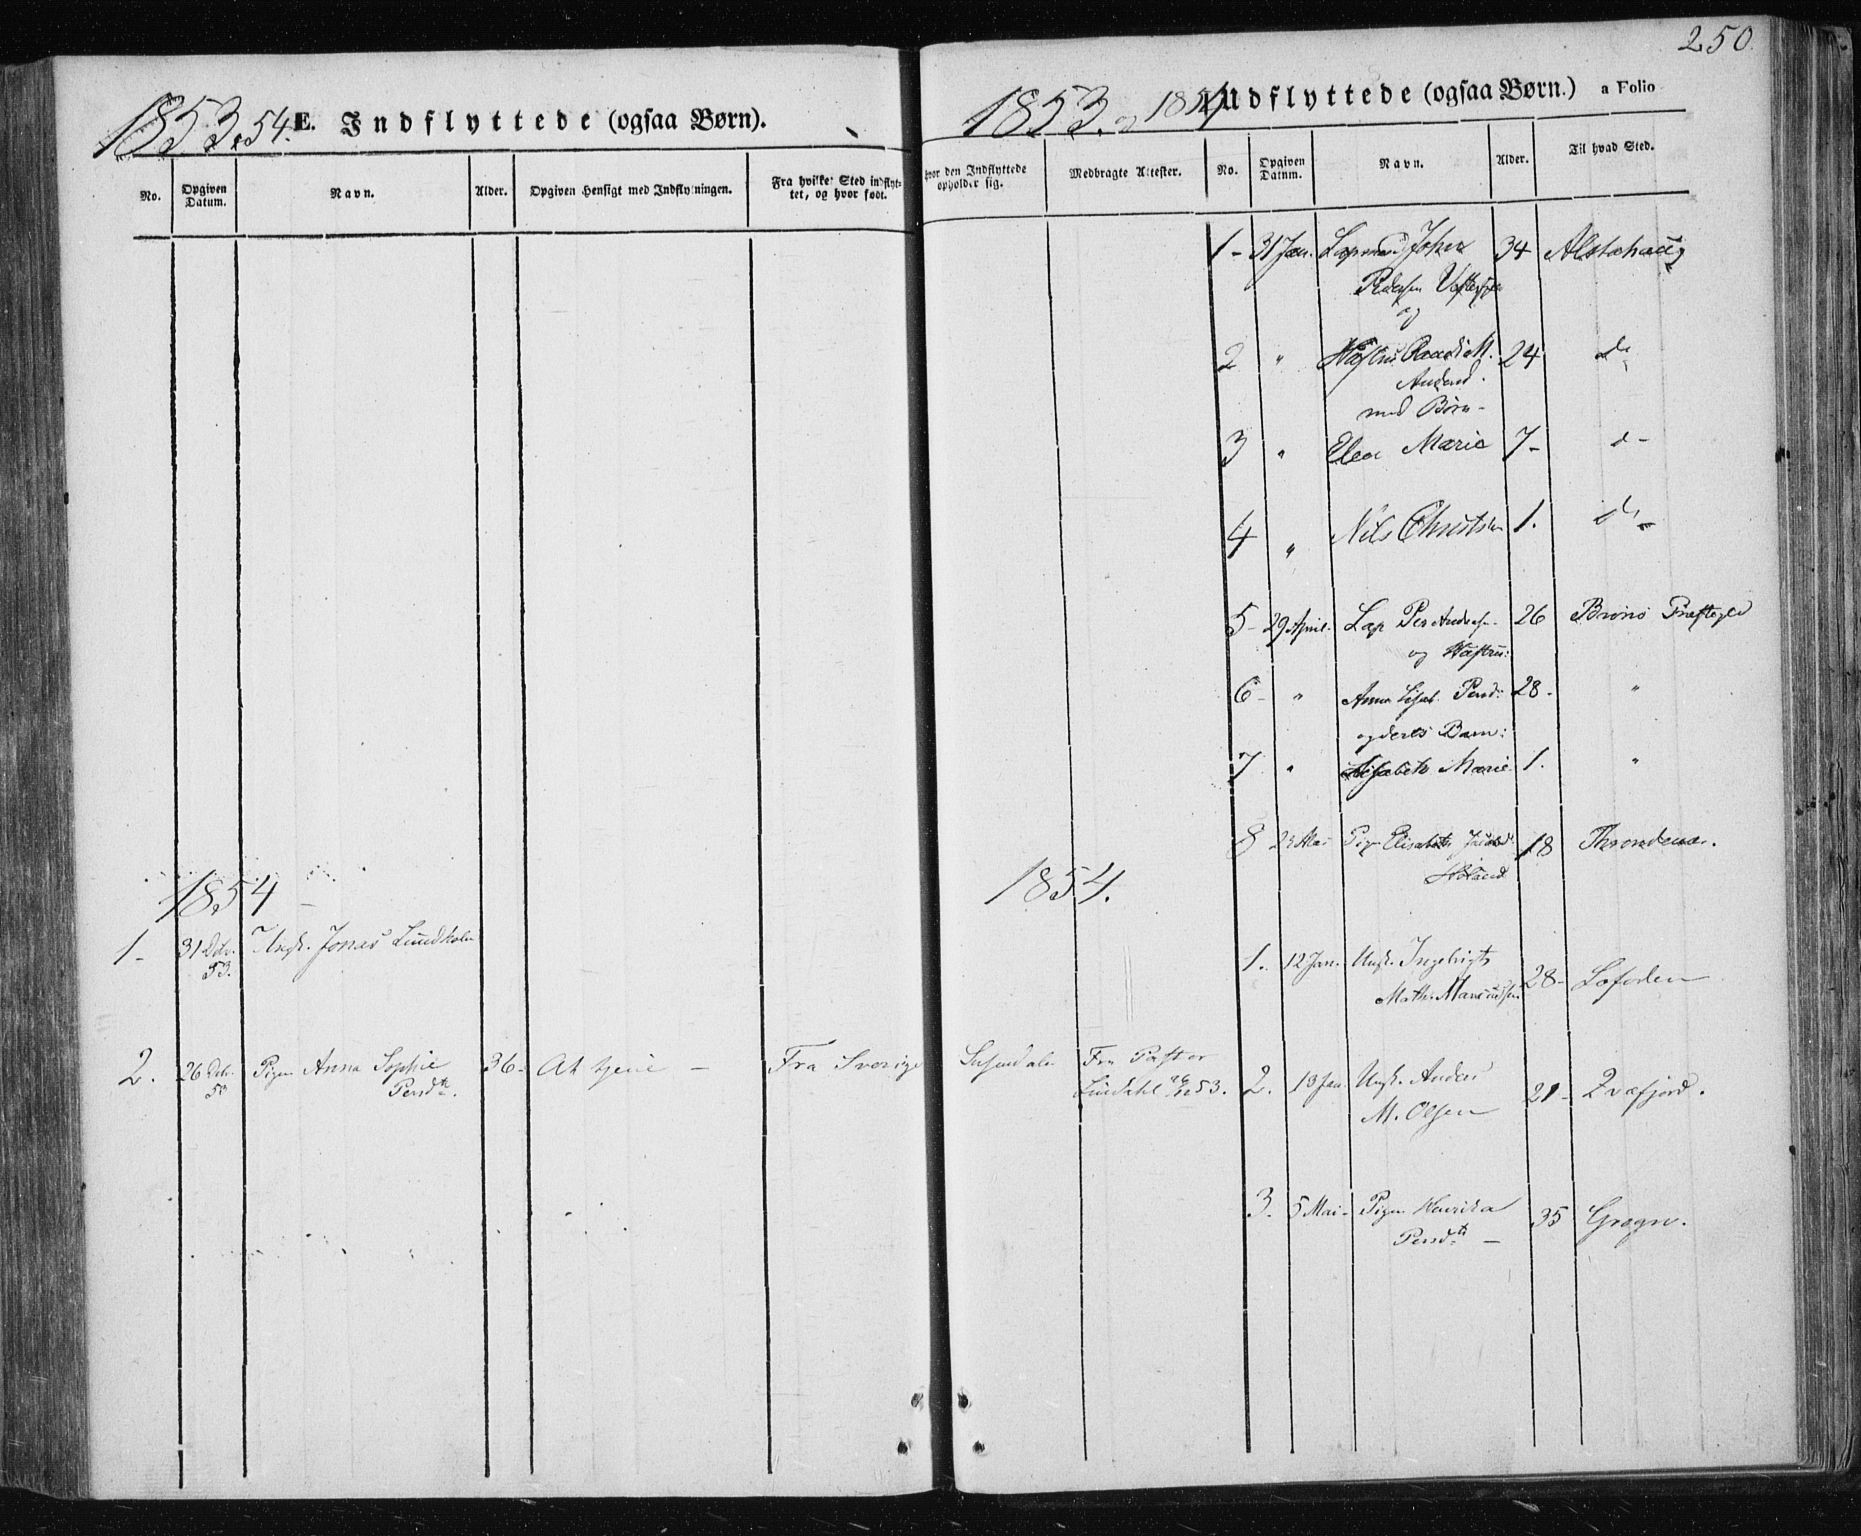 250.
1853 & 54. E. Indflyttede (ogsaa Børn).
No. Opgiven Datum. Navn. Alder. Opgiven Hensigt med Indflytningen. Fra hvilket Sted indflyttet, og hvor født.
hvor den Indflyttede opholder sig. Medbragte Attester.
1854
1- 31 Dcbr. 53. Ungk. Jonas Lundholm
2. 26 Dcbr. 53 Pigen Anna Sophie 36- At tjene - Fra Sverige Susendalen Fra Pastor
Persdtr. Lindahl 53.
1853. og 1854 Udflyttede (ogsaa Børn.) a Folio
No. Opgiven Datum. Navn. Alder. Til hvad Sted.
1- 31 Jan. Lapmand Johan 34 Alstahaug
Pedersen
og
2 " Hustru M. 24 do
Andersd.
med Børn-
3 " Elen Marie 7- d-
4 " Nils Christian 1. do-
5- 29 April. Lap Per Andersen 26 Brønø Præstegjeld
og Hustru:
6- " Anna Lisab. Persd: 28- "
og deres Barn:
7 " Elisabeth Marie 1. "
8 Mai Pige Elisabeth Jacobsd. 18 Throndenæs.
1854.
1. 12 Jan. Ungk. Ingebrigt 28- Lofoden
Math.
2. 13 Jan Ungk. Anders 21- Qvæfjord.
M. Olsen
3. 5 Mai- Pigen Henrika 35 Grogn.
Persdtr -